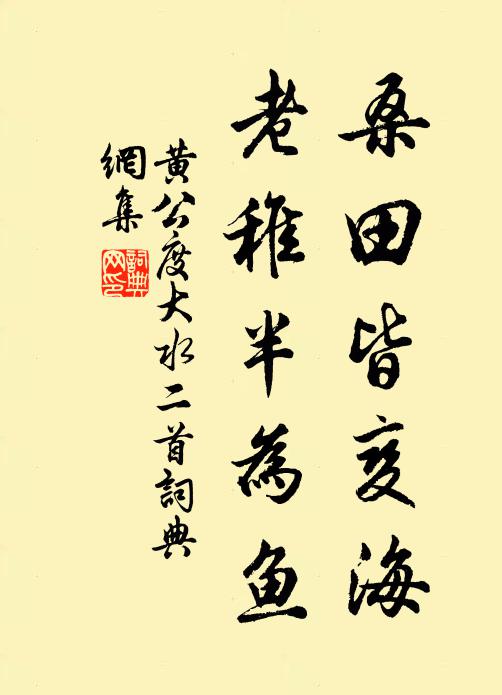 桑田皆变海
老稚半為鱼
黃公度大水二首詞典
網集
詞典
网印